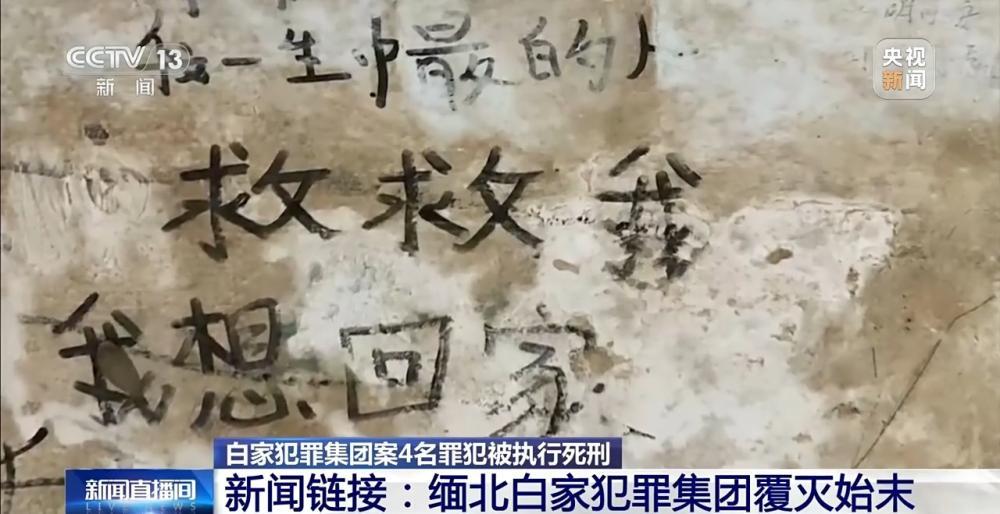 CCTV 13
新闻
央视
新闻
一生中最的人
救救我
我想回家
白家犯罪集团案4名罪犯被执行死刑
新闻直播间
LIVE NEWS
新闻链接：缅北白家犯罪集团覆灭始末